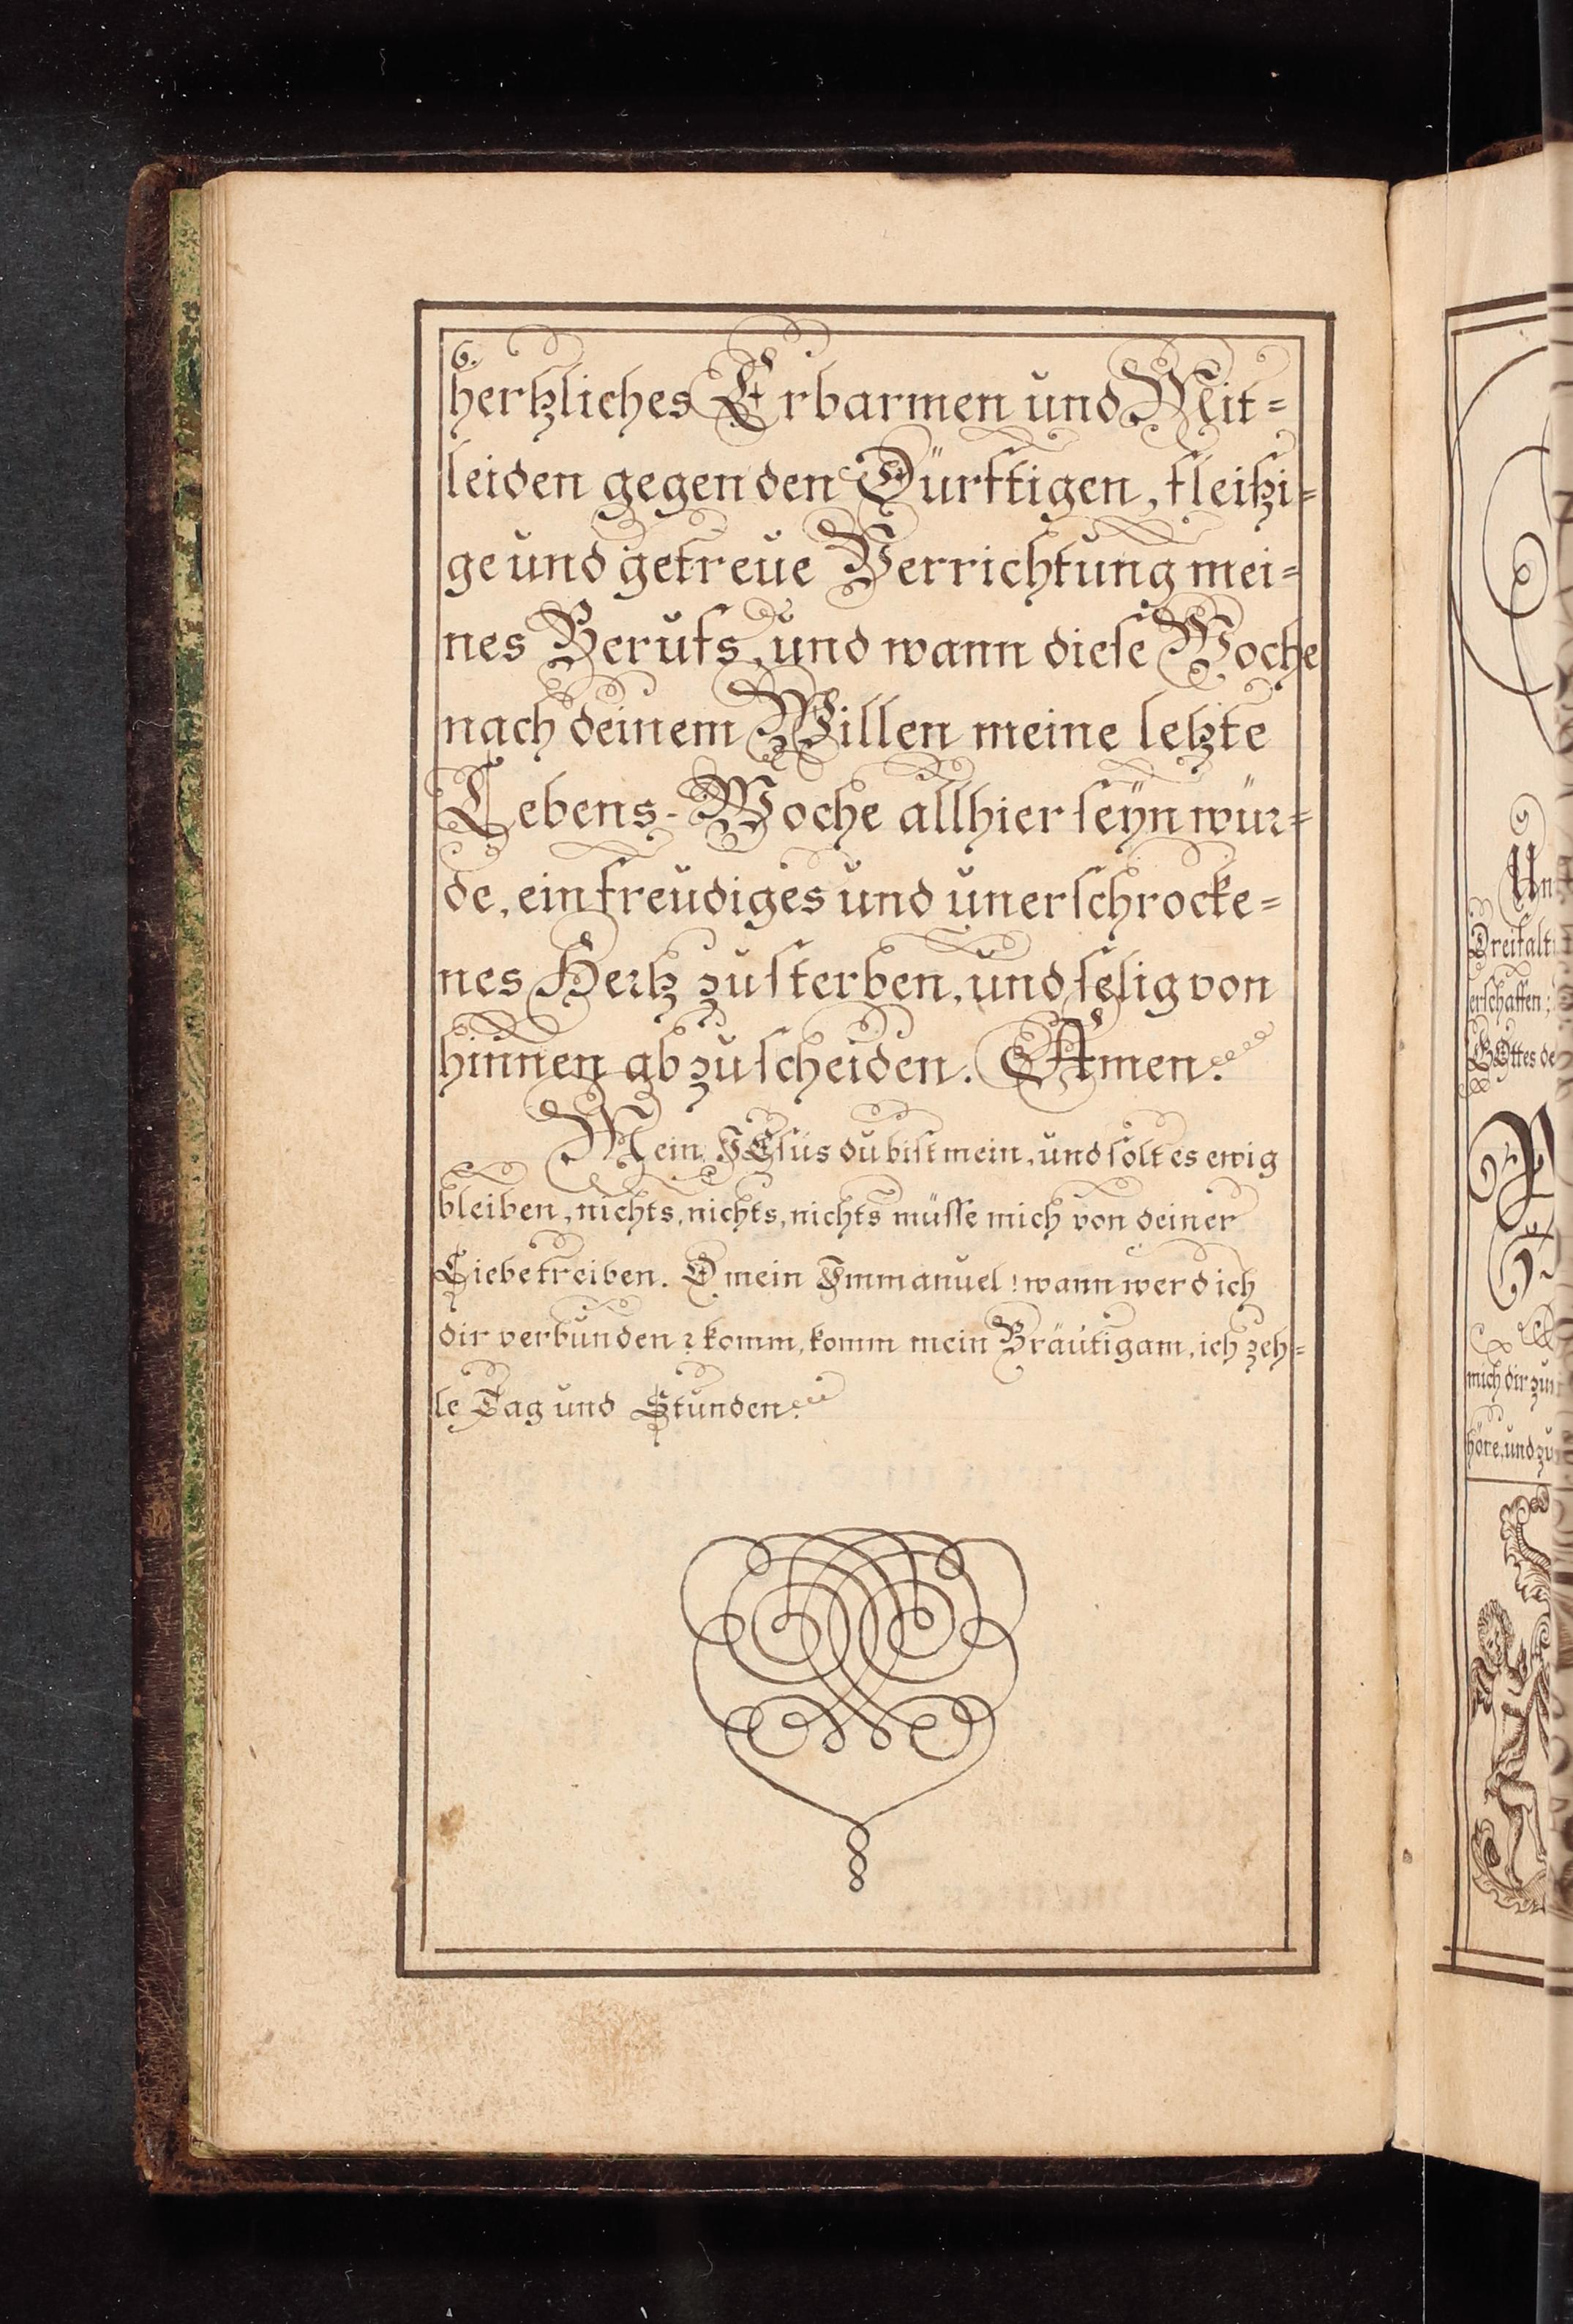 6.
hertzliches Erbarmen und Mit=
leiden gegen den Dürfftigen, fleißi=
ge und getreue Verrichtung mei=
nes Berufs, und wann diese Woche
nach deinem Willen meine letzte
Lebens-Woche allhier seÿn wür=
de, ein freudiges und unerschrocke=
nes Hertz zu sterben, und selig von
hinnen abzuscheiden. Amen.
Mein JEsus du bist mein, und solt es ewig
bleiben, nichts, nichts, nichts müsse mich von deiner
Liebe treiben. O mein Immanuel! wann werd ich
dir verbunden? komm, komm mein Bräutigam, ich zeh=
le Tag und Stunden.
Un
Dreifalt
erschaffen;
GOttes de
mich dir zu
höre, und zu